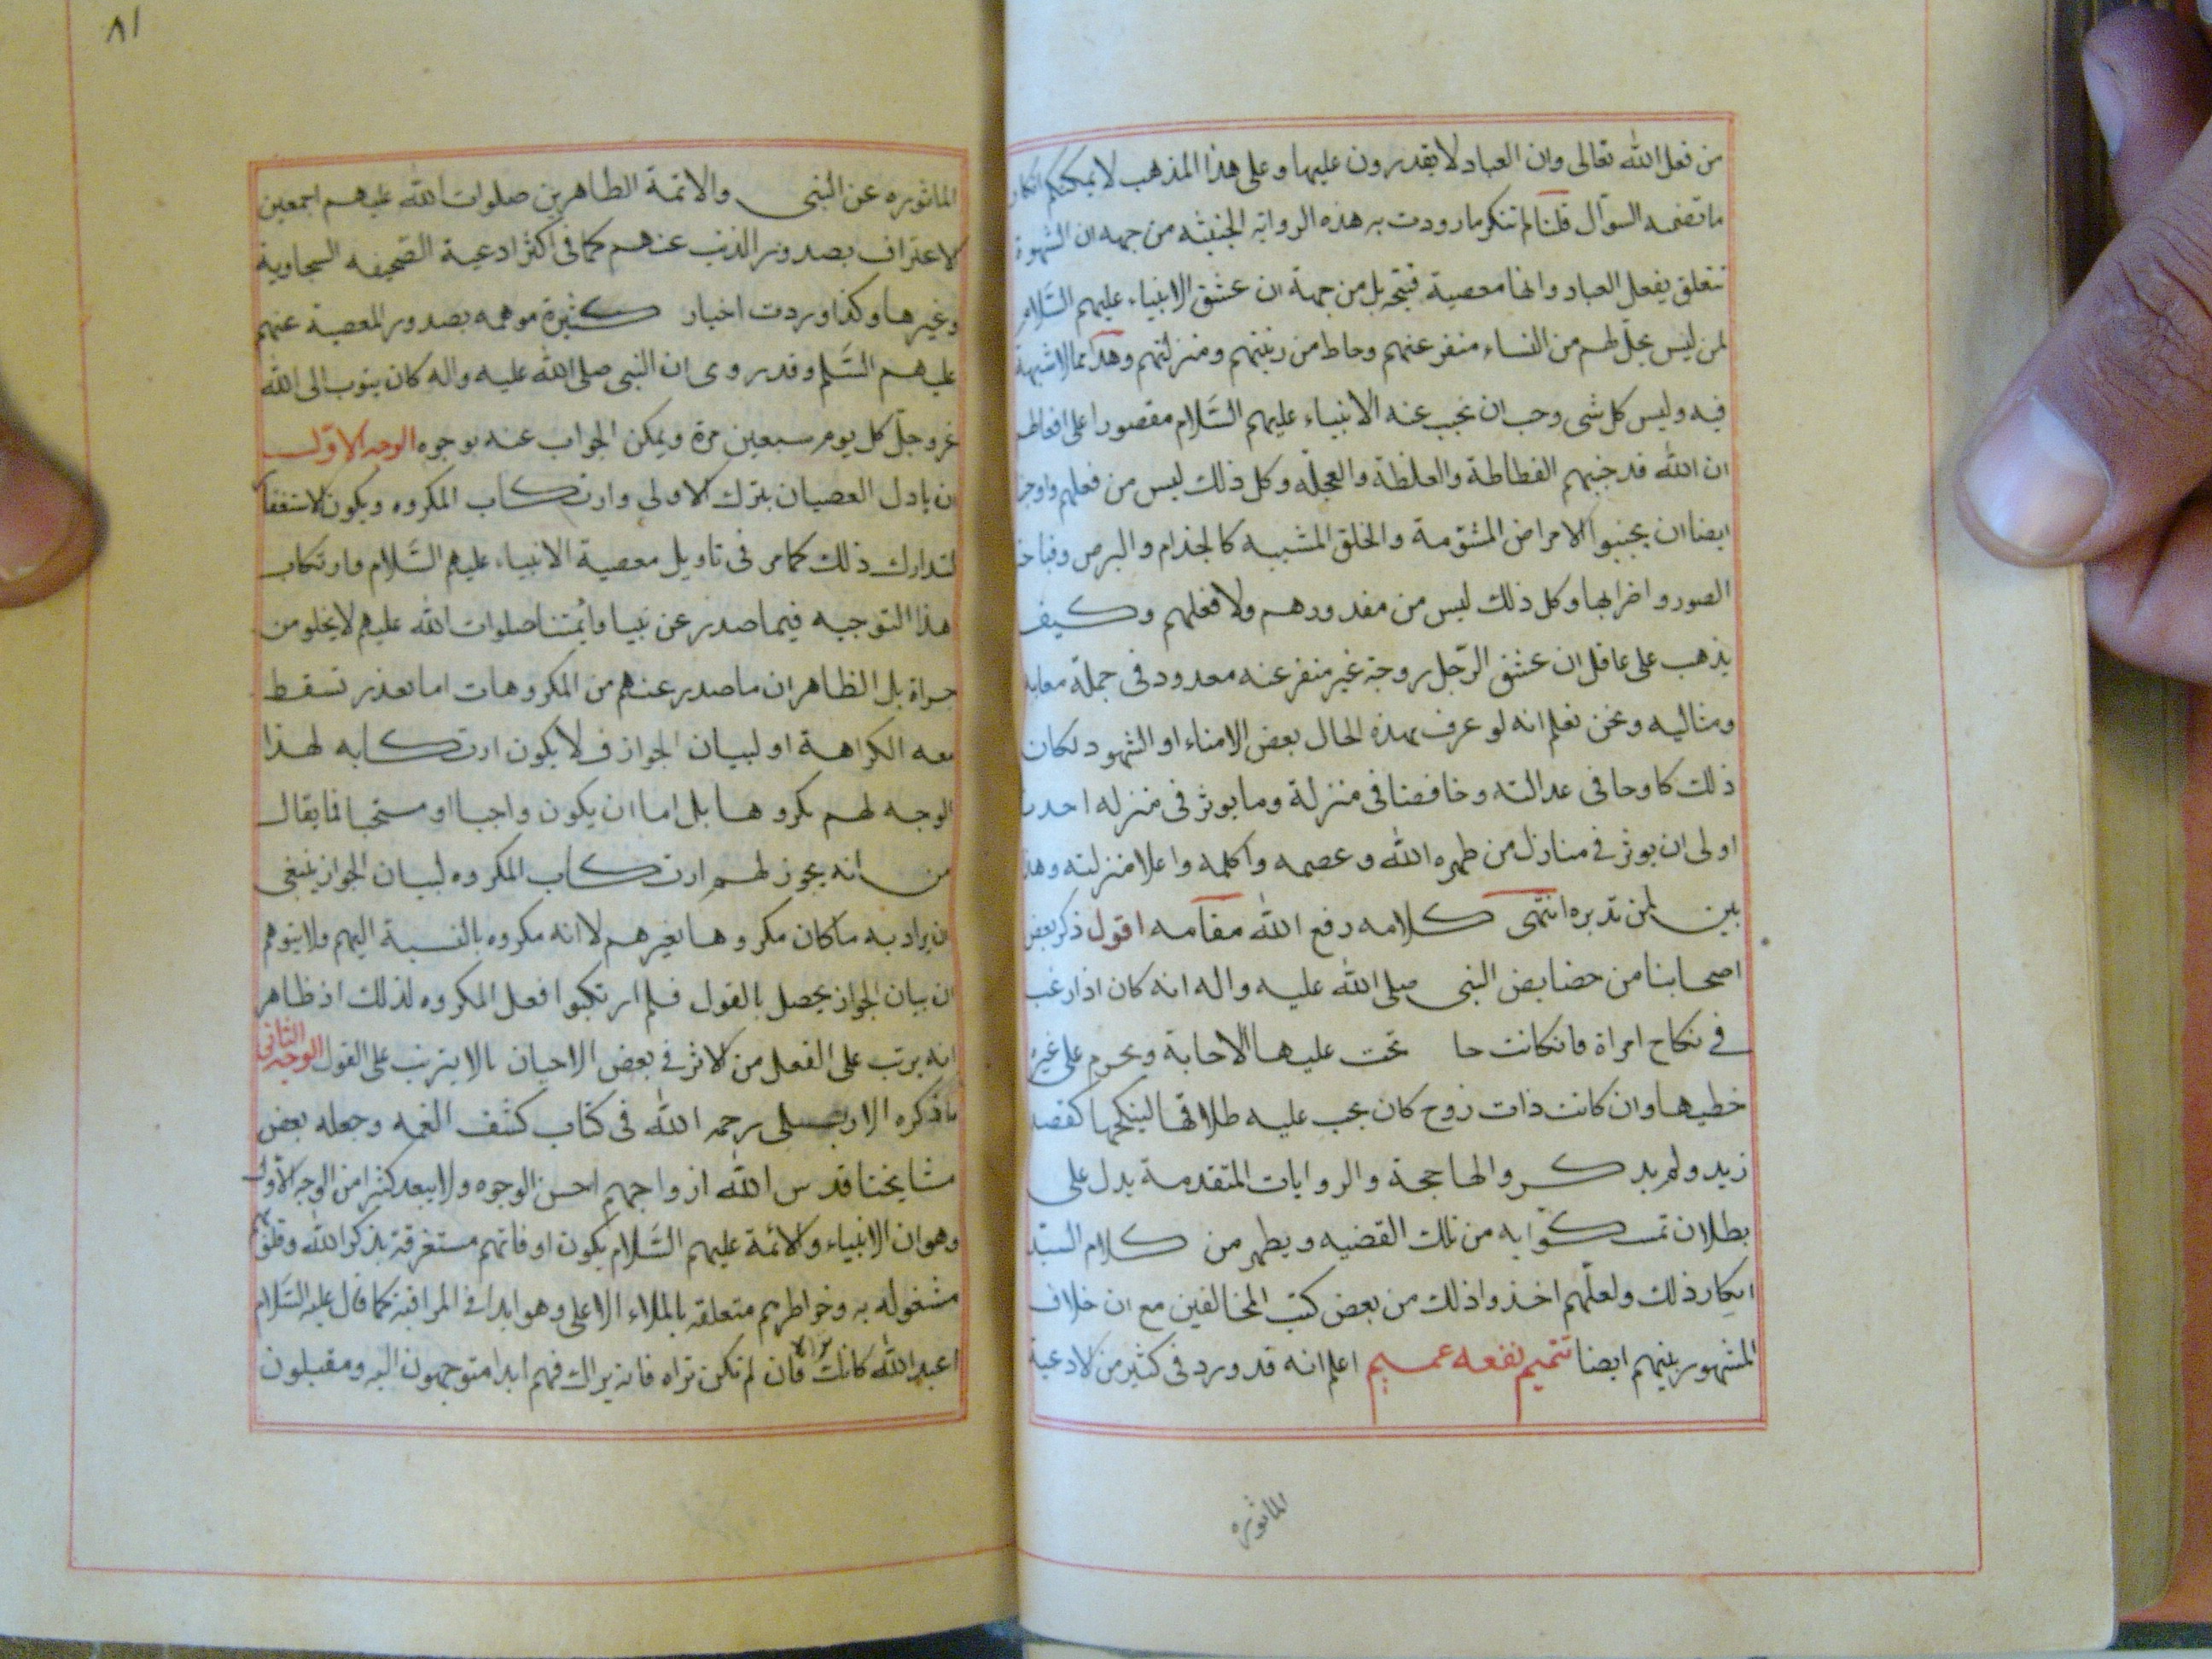 من فعل الله تعالى وان العباد لا يقدرون عليها وعلى هذا المذهب لا يمكنكم انكار
ما تضمنه السؤال قلنا لم تنكر ما رودت به هذه الرواية الخبيثه من جهه ان الشهوة
تتعلق بفعل العباد وانها معصية قبيحه بل من جهة ان عشق الانبياء عليهم السلام
لمن ليس يحل لهم من النساء منفر عنهم وحاط من رتبتهم ومنزلتهم وهذا مما لا شبهة
فيه وليس كل شى وجب ان يجب عنه الانبياء عليهم السلام مقصورا على افعالهم
ان الله قد جنبهم الفظاظة والغلظة والعجلة وكل ذلك ليس من فعلهم واوجب
ايضا ان يجنبوا الامراض المشوّمة والخلق المشيبه كالجذام والبرص وقباحة
الصور واضرابها وكل ذلك ليس من مقدورهم ولا فعلهم وكيف
يذهب على عاقل ان عشق الرّجل زوجة غير منفر عنه معدود فى جملة معايبه
ومثاليه ونحن نعلم انه لو عرف بهذه الحال بعض الامناء او الشهود لكان
ذلك كاوحا فى عدالته وخافضا فى منزلة وما يوثر فى منزله احدنا
اولى ان يوثر فى منازل من طهره الله وعصمه واكمله واعلا منزلته وهذا
بين لمن تدبره انتهى كلامه رفع الله مقامه اقول ذكر بعض
اصحابنا من خصايص النبى صلى الله عليه واله انه كان اذا رغب
فى نكاح امراة فانكانت حا تحت عليها الاجابة ويحرم على غيره
خطبها وان كانت ذات زوج كان يجب عليه طلاقها لينكحها كقصه
زيد ولم يدكروا لها حجة والروايات المتقدمة يدل على
بطلان تمسكوا به من تلك القضيه ويظهر من كلام السيّد
انكار ذلك ولعلّهم اخذوا ذلك من بعض كتب المخالفين مع ان خلاف
المشهور بينهم ايضا تتميم نفعه عميم اعلم انه قد ورد فى كثير من الادعية
الماثوره
٨١
الماثوره عن النبى والائمة الطاهرين صلوات الله عليهم اجمعين
الاعتراف بصدور الذنب عنهم كما فى اكثر ادعية الصحيفه السجادية
وغيرها وكذا وردت اخبار كثيرة موهمه بصدور المعصية عنهم
عليهم السّلم وقد روى ان النبى صلى الله عليه واله كان يتوب الى الله
عزوجلّ كل يوم سبعين مرة ويمكن الجواب عنه بوجوه الوجه الاوّل
ان ياول العصيان بترك الاولى وارتكاب المكروه ويكون الاستغفار
لتدارك ذلك كما مر فى تاويل معصية الانبياء عليهم السّلام وارتكاب
هذا التوجيه فيما صدر عن نبينا وائمتنا صلوات الله عليهم لا يخلو من
جراة بل الظاهر ان ما صدر عنهم من المكروهات اما بعذر تسقط
معه الكراهة او لبيان الجواز فلا يكون ارتكابه لهذا
الوجه لهم مكروها بل اما ان يكون واجبا او مستحبا فما يقال
من انه يجوز لهم ارتكاب المكروه لبيان الجواز ينبغى
ان يراد به ما كان مكروها بغيرهم لا انه مكروه بالنسبة اليهم ولا يتوهم
ان بيان الجواز يحصل بالقول فلم ارتكبوا فعل المكروه لذلك اذ ظاهر
انه يرتب على الفعل من الاثر فى بعض الاحيان ما لا يترتب على القول الوجه الثانى
ما ذكره الاربلى رحمه الله فى كتاب كشف الغمه وجعله بعض
مشايخنا قدس الله ارواحهم احسن الوجوه ولا يبعد كثيرا من الوجه الاول
وهو ان الانبياء والائمة عليهم السّلام يكون اوقاتهم مستغرقة بذكر الله وقلوبهم
مشغوله به وخواطرهم متعلقه بالملاء الاعلى وهو ابدا فى المراقبة كما قال عليه السّلام
اعبد الله كانك تراه فان لم تكن تراه فانه يراك فهم ابدا متوجهون اليه ومقبلون